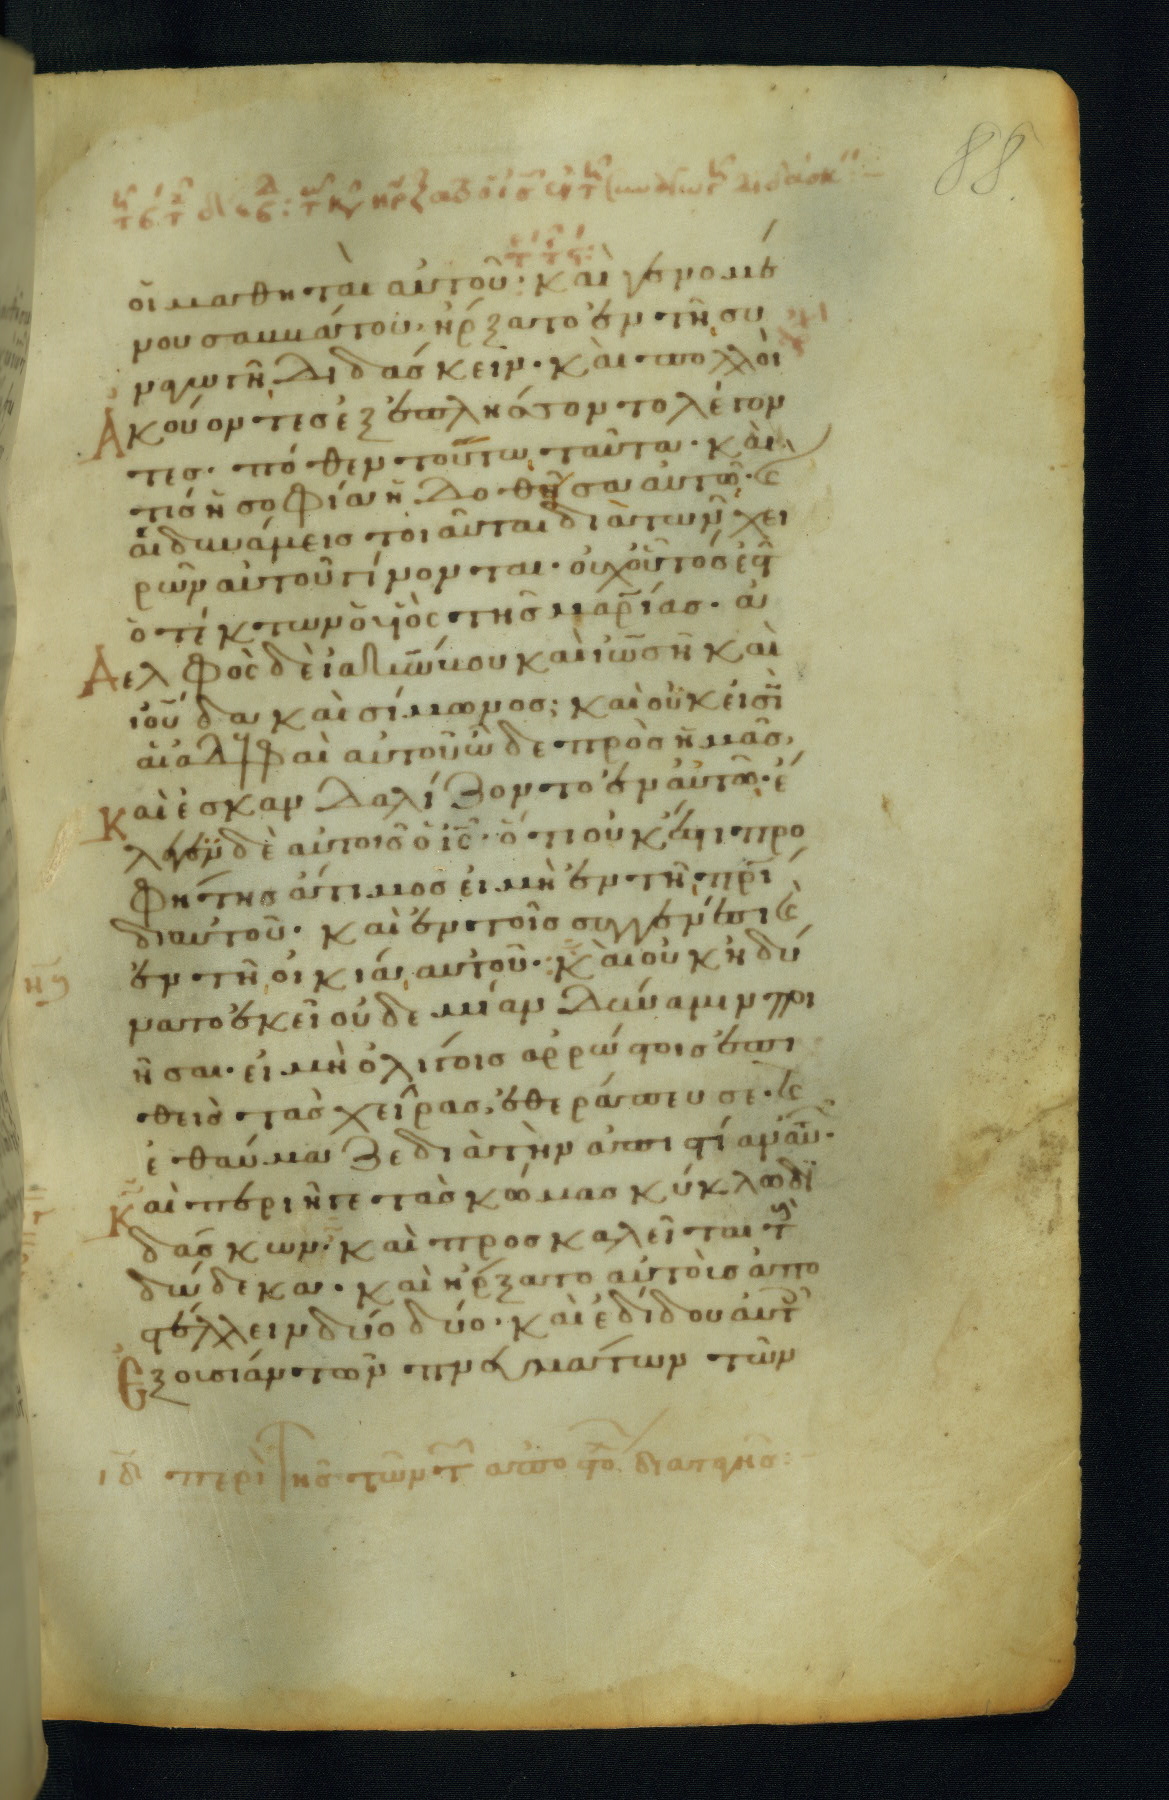 88
οἱ μαθηταὶ αὐτοῦ· καὶ γενομέ
νου σαββάτου, ἤρξατο ἐν τῇ συ
ναγωγῇ διδάσκειν· καὶ πολλοὶ
ἀκούοντες ἐξεπλήσσοντο λέγον
τες· πόθεν τούτω ταῦτα· καὶ
τίς ἡ σοφία ἡ δοθῆσα αὐτῷ·
αἱ δυνάμεις τοιαῦται διὰ τῶν χει
ρῶν αὐτοῦ γίνονται· οὐχ οὗτός ἐστ
ὁ τέκτων ὁ υἱὸς τῆς μαρίας· ἀ
δελφὸς δὲ ἰακώβου καὶ ἰωσῆ καὶ
ἰούδα καὶ σίμωνος; καὶ οὐκ εἰσὶ
αἱ ἀδελφαὶ αὐτοῦ ὧδε πρὸς ἡμᾶς,
καὶ ἐσκανδαλίζοντο ἐν αὐτῷ· ἔ
λεγεν δὲ αὐτοῖς ὁ ἰς· ὅτι οὐκ ἔστι προ
φήτης ἄτιμος εἰ μὴ ἐν τῇ πρί
δι αὐτοῦ· καὶ ἐν τοῖς συγγενέσι
ἐν τῇ οἰκία αὐτοῦ· καὶ οὐκ ἠδύ
νατο ἐκεῖ οὐδεμίαν δύναμιν ποι
ῆσαι· εἰ μὴ ὀλίγοις ἀρρώστοις ἐπι
θεὶς τὰς χεῖρας, ἐθεράπευσε·
ἐθαύμαζε διὰ τὴν ἀπιστίαν αὐτ·
καὶ περιῆγε τὰς κώμας κύκλω δι
δάσκων· καὶ προσκαλεῖται τ
δώδεκα· καὶ ἤρξατο αὐτοὺς ἀπο
στέλλειν δύο δύο· καὶ ἐδίδου αὐτ
ἐξουσίαν τῶν πνευμάτων τῶν
ιδ περὶ τῆς τῶν ἀποστο διαταγῆς: